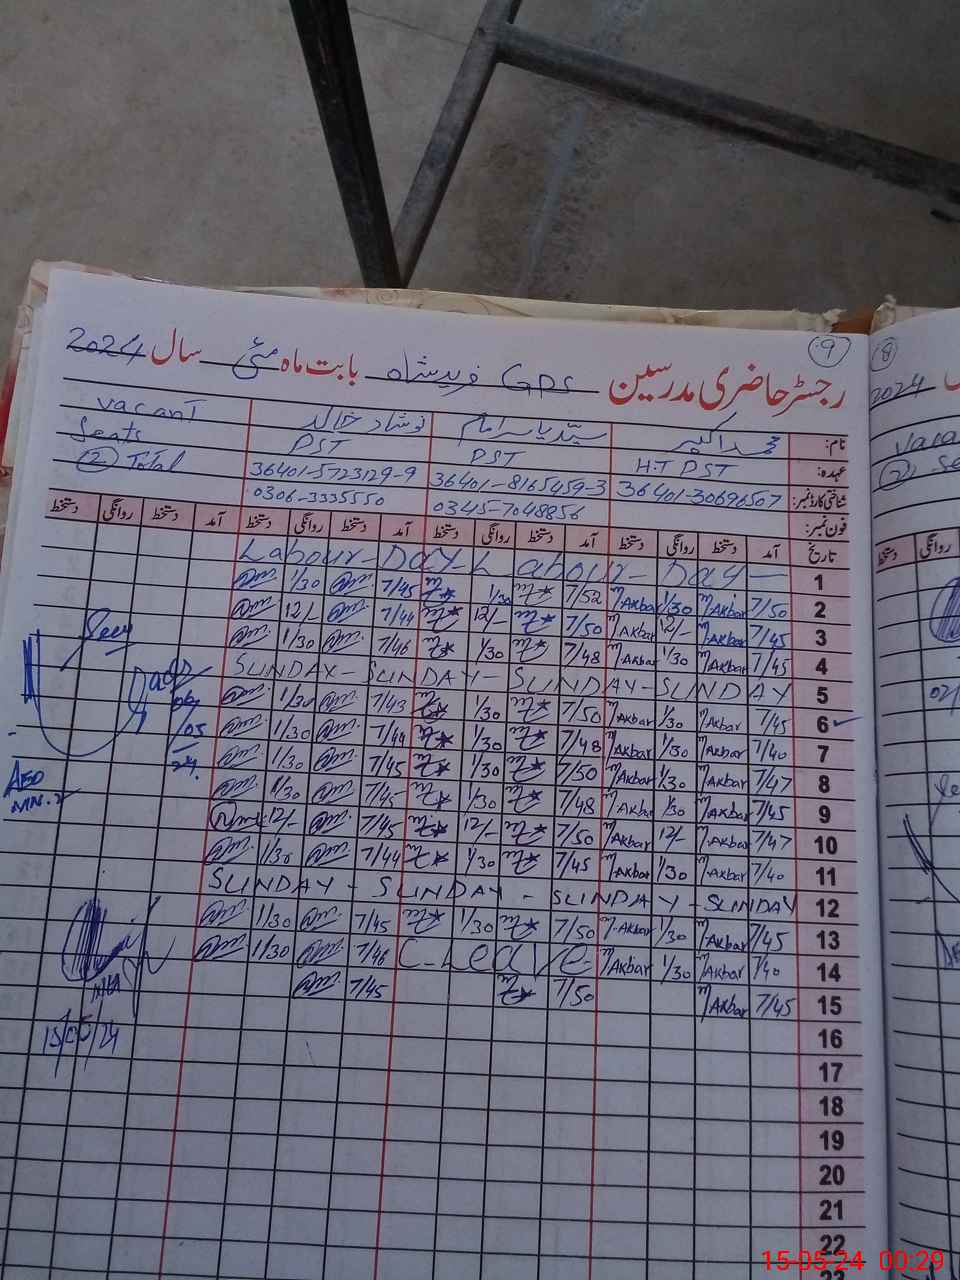 9
رجسٹر حاضری مدرسین GPS فرید شاہ بابت ماہ مئی سال 2024
نام: محمد اکبر سید یاسر امام نوشاد خالد vacant
عہدہ: H.T PST PST PST Seats
شناختی کارڈ نمبر: 36401-30696507 36401-8165459-3 36401-5723129-9 2 Total
فون نمبر: 0345-7048856 0306-3335550
تاریخ آمد دستخط روانگی دستخط آمد دستخط روانگی دستخط آمد دستخط روانگی دستخط آمد دستخط روانگی دستخط
1 Labour-Day-Labour-Day-
2 7/50 Akbar 1/30 Akbar 7/52 1/30 7/45 1/30
3 7/45 Akbar 12/- Akbar 7/50 12/- 7/44 12/-
4 7/45 Akbar 1/30 Akbar 7/48 1/30 7/46 1/30
5 SUNDAY-SUNDAY-SUNDAY-SUNDAY
6 7/45 Akbar 1/30 Akbar 7/50 1/30 7/43 1/30
7 7/40 Akbar 1/30 Akbar 7/48 1/30 7/44 1/30
8 7/47 Akbar 1/30 Akbar 7/50 1/30 7/45 1/30
9 7/45 Akbar 1/30 Akbar 7/48 1/30 7/45 1/30
10 7/47 Akbar 12/- Akbar 7/50 12/- 7/45 12/-
11 7/40 Akbar 1/30 Akbar 7/45 1/30 7/44 1/30
12 SUNDAY-SUNDAY-SUNDAY-SUNDAY
13 7/45 Akbar 1/30 Akbar 7/50 1/30 7/45 1/30
14 7/40 Akbar 1/30 Akbar C-Leave 7/46 1/30
15 7/45 Akbar 7/50 7/45
16
17
18
19
20
21
22
Seen
06/05/24
AEO
15/05/24
8
2024
دستخط روانگی
15-05-24 00:29